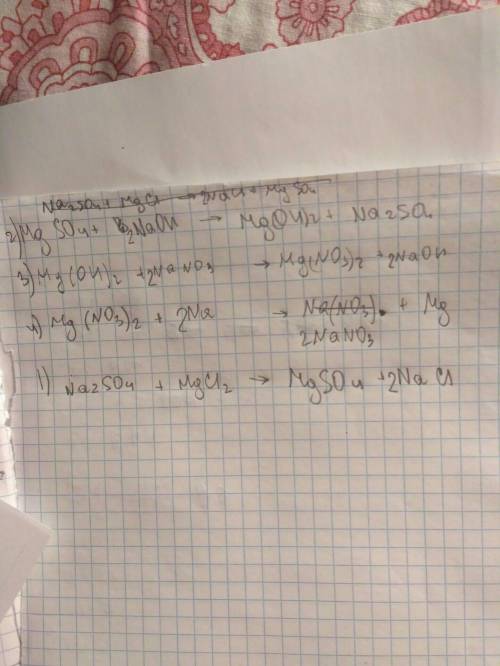 Na2SO4 + MgCl → 2NaCl + MgSO4
2) Mg SO4 + 2NaOH → Mg(OH)2 + Na2SO4
3) Mg(OH)2 + 2NaNO3 → Mg(NO3)2 + 2NaOH
4) Mg (NO3)2 + 2Na → Na(NO3) + Mg
2NaNO3
1) Na2SO4 + MgCl2 → MgSO4 + 2NaCl